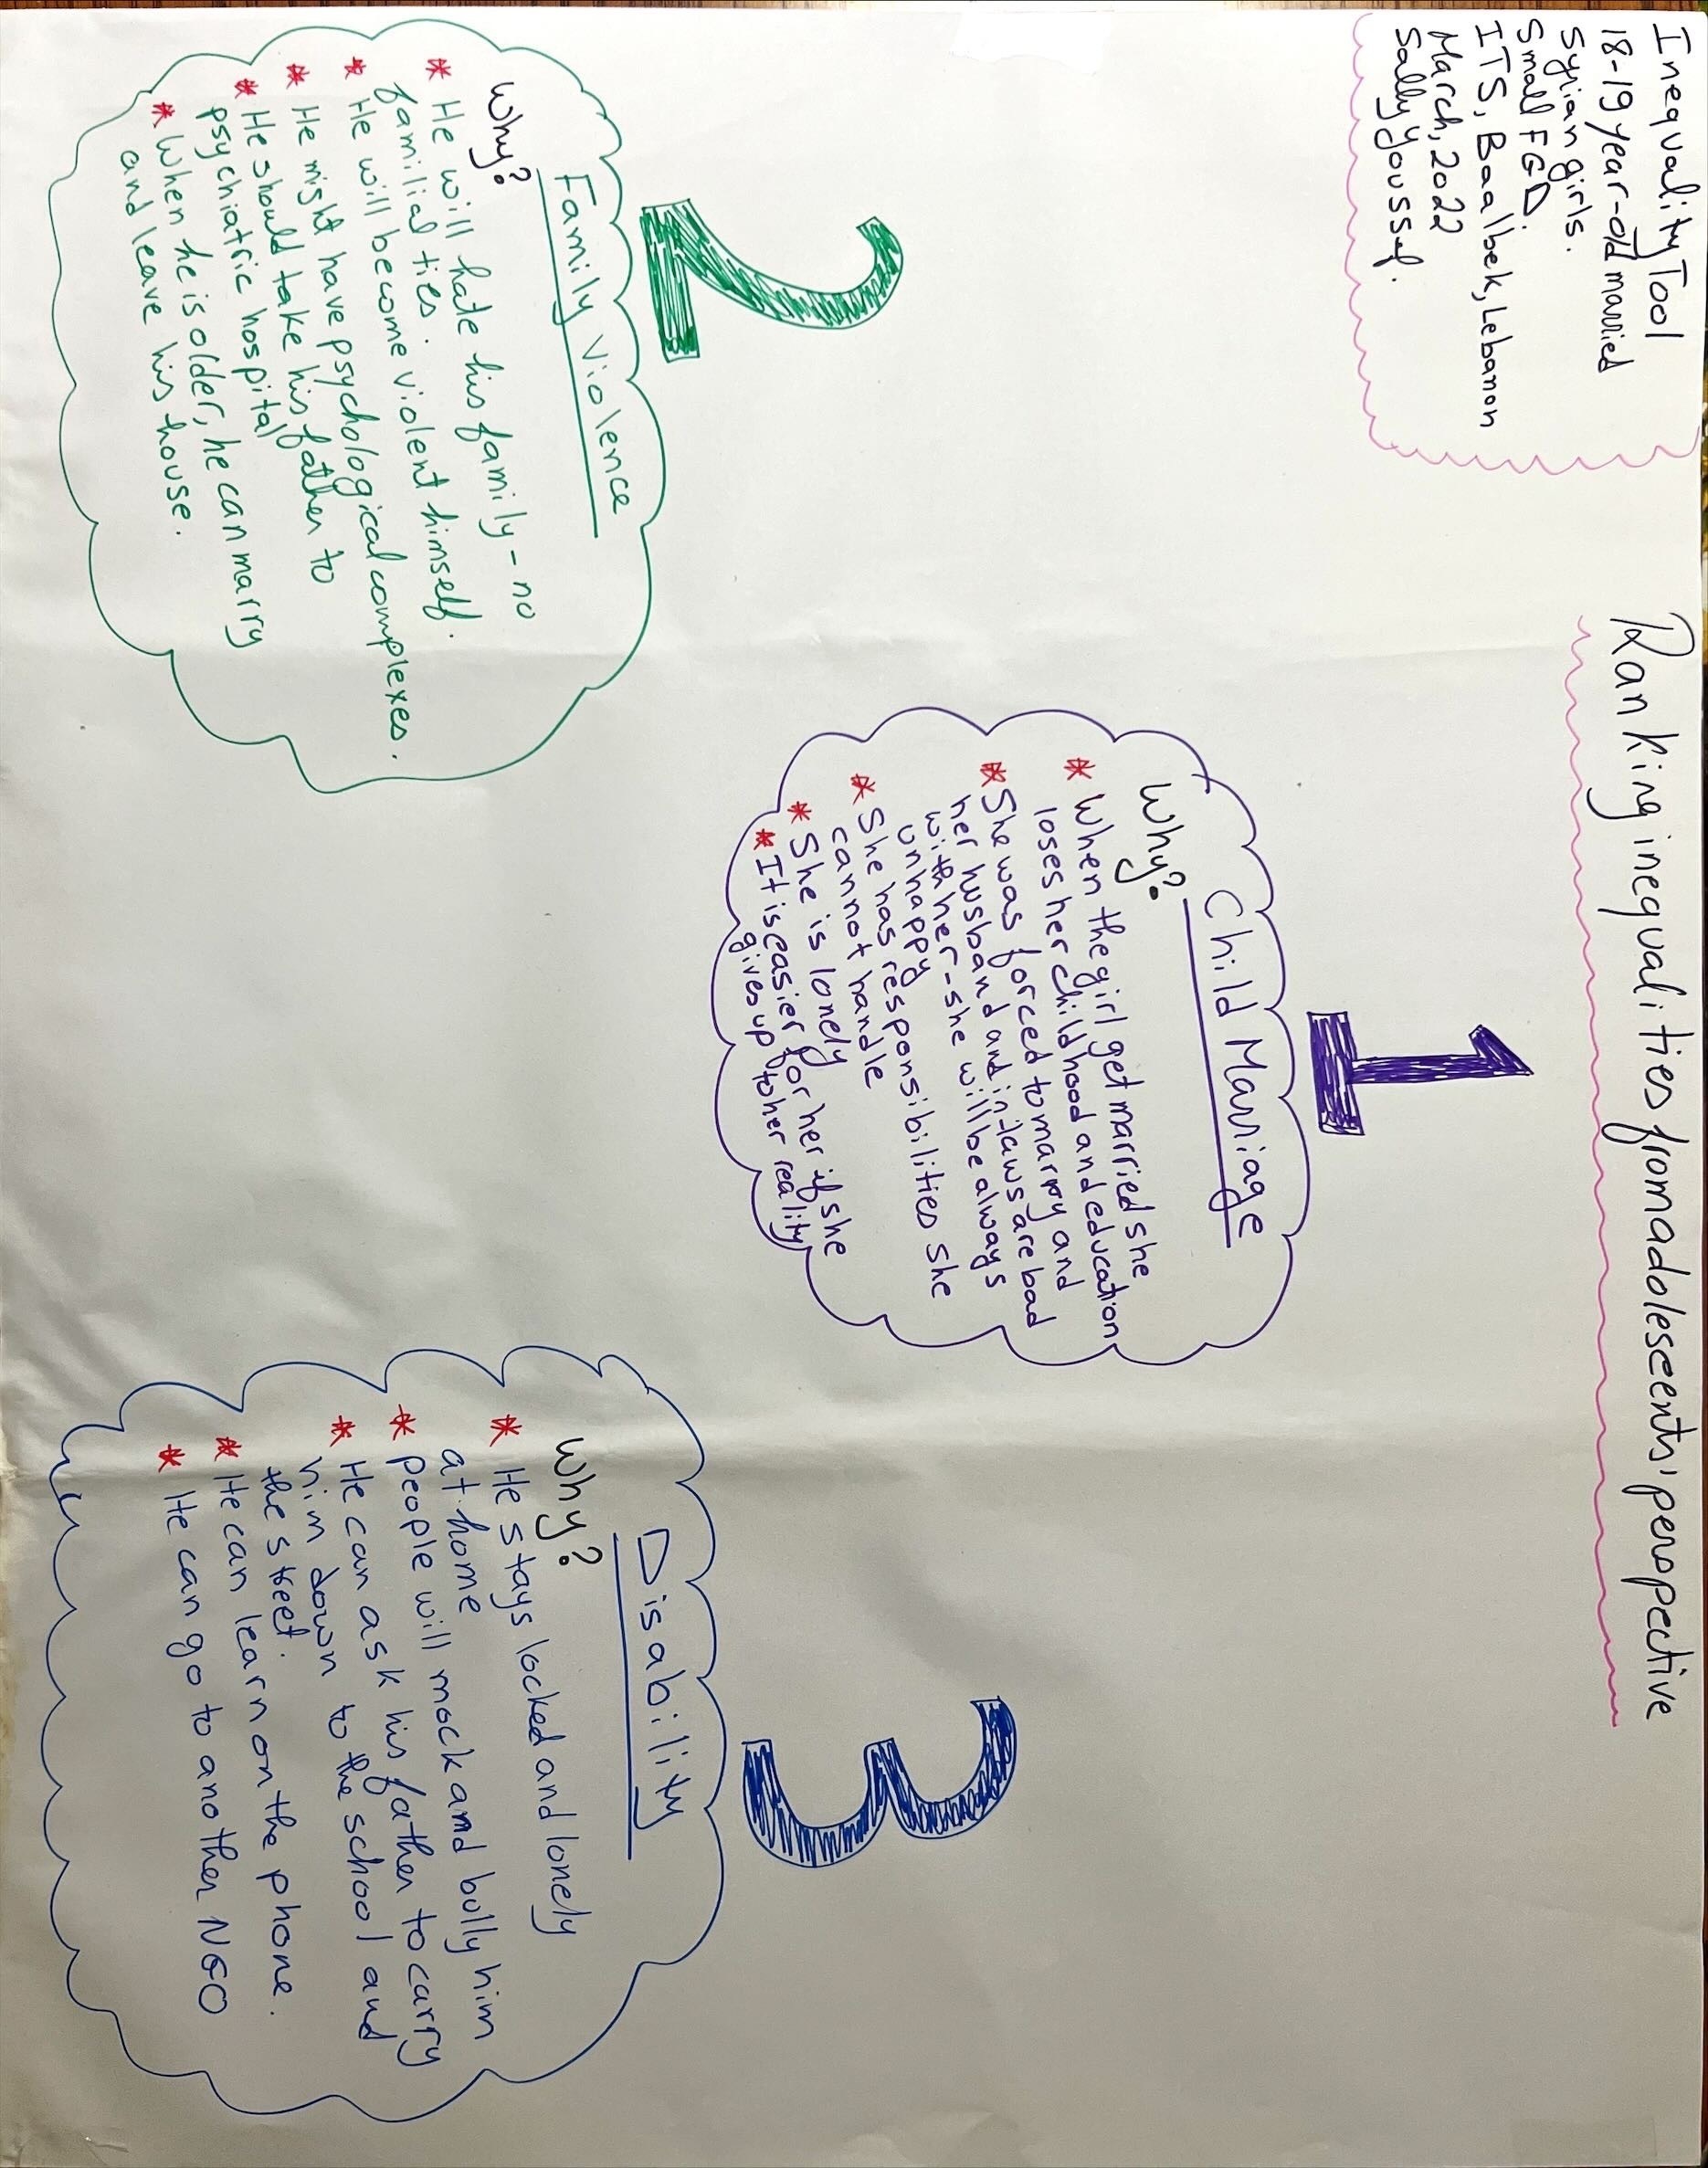 Inequality Tool
18-19 year-old married
Syrian girls.
Small FGD.
ITS, Baalbek, Lebanon
March, 2022
Sally Youssef.
Ranking inequalities from adolescents' perspective
1
Child Marriage
Why?
* When the girl get married she
loses her childhood and education
* She was forced to marry and
her husband and in-laws are bad
with her - she will be always
unhappy
* She has responsibilities she
cannot handle
* She is lonely
* It is easier for her if she
gives up to her reality
2
Family Violence
Why?
* He will hate his family - no
familial ties.
* He will become violent himself.
* He might have psychological complexes.
* He should take his father to
psychiatric hospital
* When he is older, he can marry
and leave his house.
3
Disability
Why?
* He stays locked and lonely
at home
* People will mock and bully him
* He can ask his father to carry
him down to the school and
the street.
* He can learn on the phone.
* He can go to another NGO